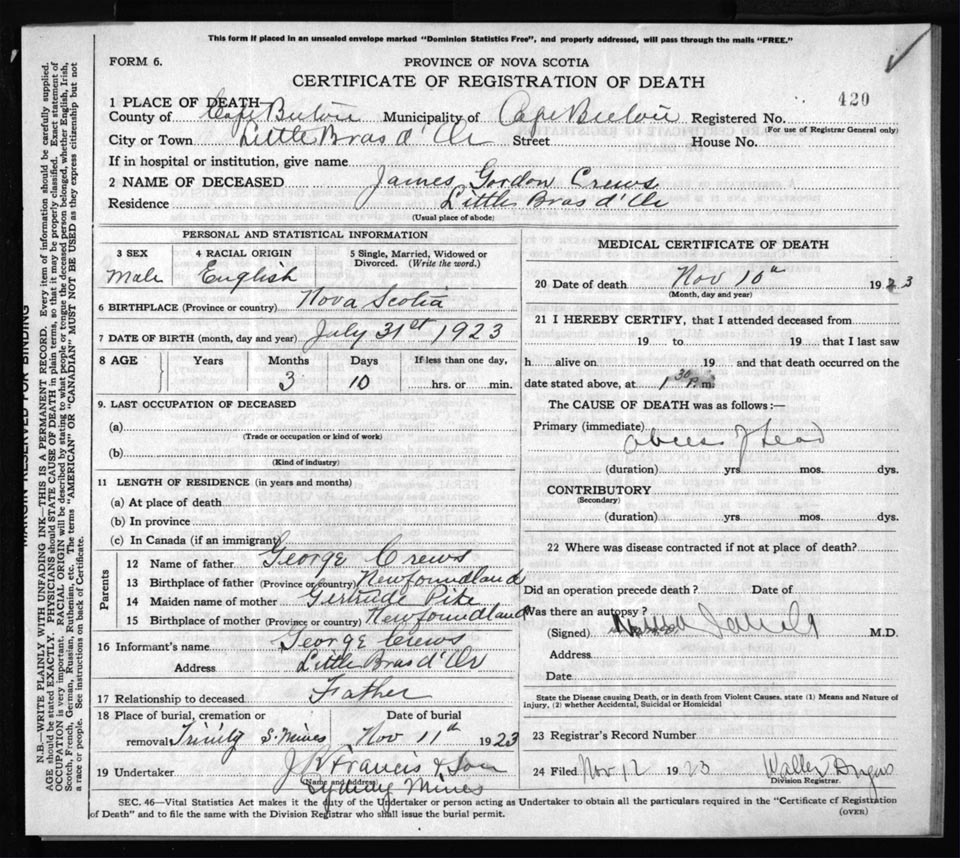 This form if placed in an unsealed envelope marked "Dominion Statistics Free", and properly addressed, will pass through the mails "FREE."
FORM 6.
PROVINCE OF NOVA SCOTIA
CERTIFICATE OF REGISTRATION OF DEATH
420
1 PLACE OF DEATH—
County of Cape Breton Municipality of Cape Breton Registered No.
(For use of Registrar General only)
City or Town Little Bras d'Or Street House No.
If in hospital or institution, give name
2 NAME OF DECEASED James Gordon Crews
Residence Little Bras d'Or
(Usual place of abode)
PERSONAL AND STATISTICAL INFORMATION
3 SEX 4 RACIAL ORIGIN 5 Single, Married, Widowed or Divorced. (Write the word.)
Male English
6 BIRTHPLACE (Province or country) Nova Scotia
7 DATE OF BIRTH (month, day and year) July 31st 1923
8 AGE Years Months Days If less than one day,
3 10 hrs. or min.
9. LAST OCCUPATION OF DECEASED
(a)
(Trade or occupation or kind of work)
(b)
(Kind of industry)
11 LENGTH OF RESIDENCE (in years and months)
(a) At place of death
(b) In province
(c) In Canada (if an immigrant)
Parents
12 Name of father George Crews
13 Birthplace of father (Province or country) Newfoundland
14 Maiden name of mother Gertrude Pike
15 Birthplace of mother (Province or country) Newfoundland
16 Informant's name George Crews
Address Little Bras d'Or
17 Relationship to deceased Father
18 Place of burial, cremation or Date of burial
removal Trinity S. Mines Nov 11th 1923
19 Undertaker J R Francis & Son
(Name and address)
Sydney Mines
MEDICAL CERTIFICATE OF DEATH
20 Date of death Nov 10th 1923
(Month, day and year)
21 I HEREBY CERTIFY, that I attended deceased from
19 to 19 that I last saw
h alive on 19 and that death occurred on the
date stated above, at 1 30 P. m.
The CAUSE OF DEATH was as follows:—
Primary (immediate)
(duration) yrs mos. dys.
CONTRIBUTORY
(Secondary)
(duration) yrs mos. dys.
22 Where was disease contracted if not at place of death?
Did an operation precede death? Date of
Was there an autopsy?
(Signed) M.D.
Address
Date
State the Disease causing Death, or in death from Violent Causes, state (1) Means and Nature of
Injury, (2) whether Accidental, Suicidal or Homicidal
23 Registrar's Record Number
24 Filed Nov 12 1923
Division Registrar.
SEC. 46—Vital Statistics Act makes it the duty of the Undertaker or person acting as Undertaker to obtain all the particulars required in the "Certificate of Registration
of Death" and to file the same with the Division Registrar who shall issue the burial permit.
(OVER)
MARGIN RESERVED FOR BINDING
N.B.—WRITE PLAINLY WITH UNFADING INK—THIS IS A PERMANENT RECORD. Every item of information should be carefully supplied.
AGE should be stated EXACTLY. PHYSICIANS should STATE CAUSE OF DEATH in plain terms, so that it may be properly classified. Exact statement of
OCCUPATION is very important. RACIAL ORIGIN will be described by stating to what people or tongue the deceased person belonged, whether English, Irish,
Scotch, French, German, Russian, Ruthenian etc. The terms "AMERICAN" OR "CANADIAN" MUST NOT BE USED as they express citizenship but not
a race or people. See instructions on back of Certificate.